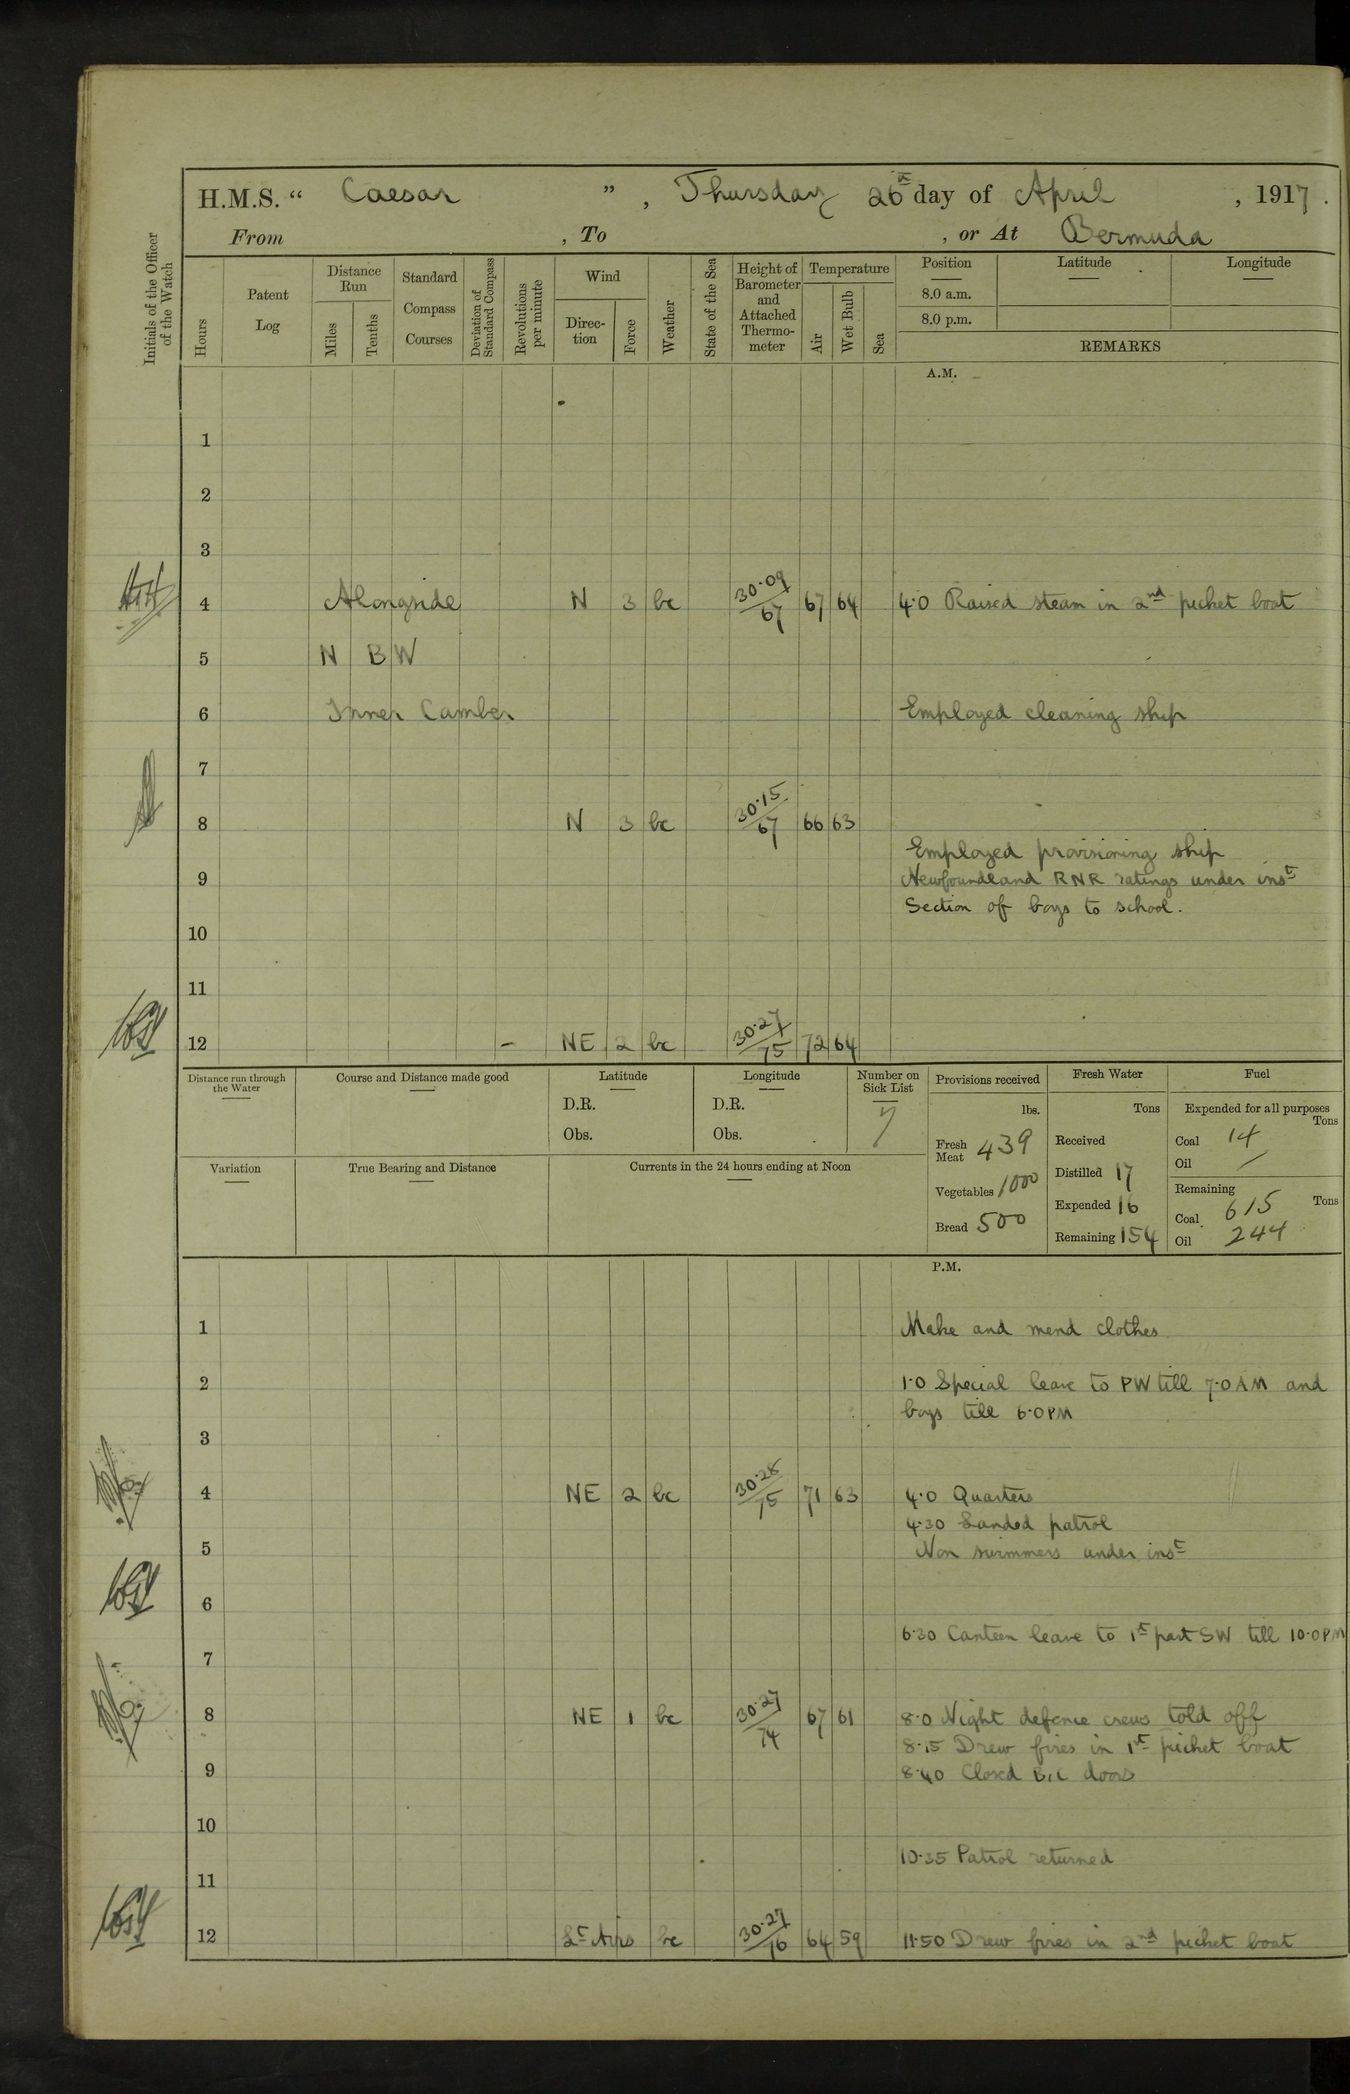 H.M.S. “ Caesar ”, Thursday 26th day of April, 1917.
From , To , or At Bermuda
Initials of the Officer of the Watch
Hours
Patent Log
Distance Run
Miles
Tenths
Standard Compass Courses
Deviation of Standard Compass
Revolutions per minute
Wind
Direction
Force
Weather
State of the Sea
Height of Barometer and Attached Thermometer
Temperature
Air
Wet Bulb
Sea
Position
Latitude
Longitude
8.0 a.m.
8.0 p.m.
REMARKS
A.M.
1
2
3
4 Alongside N 3 bc 30·09/67 67 64 4·0 Raised steam in 2nd picket boat
5 N B W
6 Inner Camber Employed cleaning ship
7
8 N 3 bc 30·15/67 66 63
Employed provisioning ship
9 Newfoundland RNR ratings under inst
Section of boys to school.
10
11
12 – NE 2 bc 30·27/75 72 64
Distance run through the Water
Course and Distance made good
Latitude
D.R.
Obs.
Longitude
D.R.
Obs.
Number on Sick List
7
Provisions received
lbs.
Fresh Meat 439
Vegetables 1000
Bread 500
Fresh Water
Tons
Received
Distilled 17
Expended 16
Remaining 154
Fuel
Expended for all purposes
Tons
Coal 14
Oil /
Remaining
Tons
Coal 615
Oil 244
Variation
True Bearing and Distance
Currents in the 24 hours ending at Noon
P.M.
1 Make and mend clothes
2 1·0 Special leave to PW till 7·0 AM and
boys till 6·0 PM
3
4 NE 2 bc 30·28/75 71 63 4·0 Quarters
4·30 Landed patrol
5 Non swimmers under inst
6
6·30 Canteen leave to 1st part SW till 10·0 PM
7
8 NE 1 bc 30·27/74 67 61 8·0 Night defence crews told off
8·15 Drew fires in 1st picket boat
9 8·40 Closed doors
10
10·35 Patrol returned
11
12 Lt Airs bc 30·27/76 64 59 11·50 Drew fires in 2nd picket boat